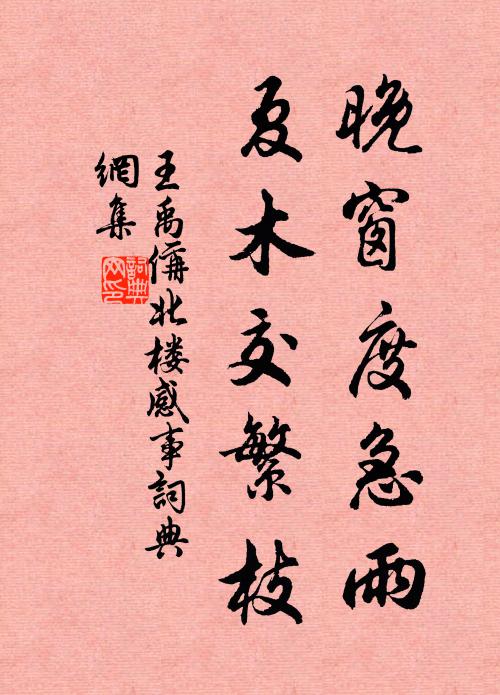 晚窗度急雨
夏木交繁枝
王禹偁北楼感事詞典
網集
詞典
网印